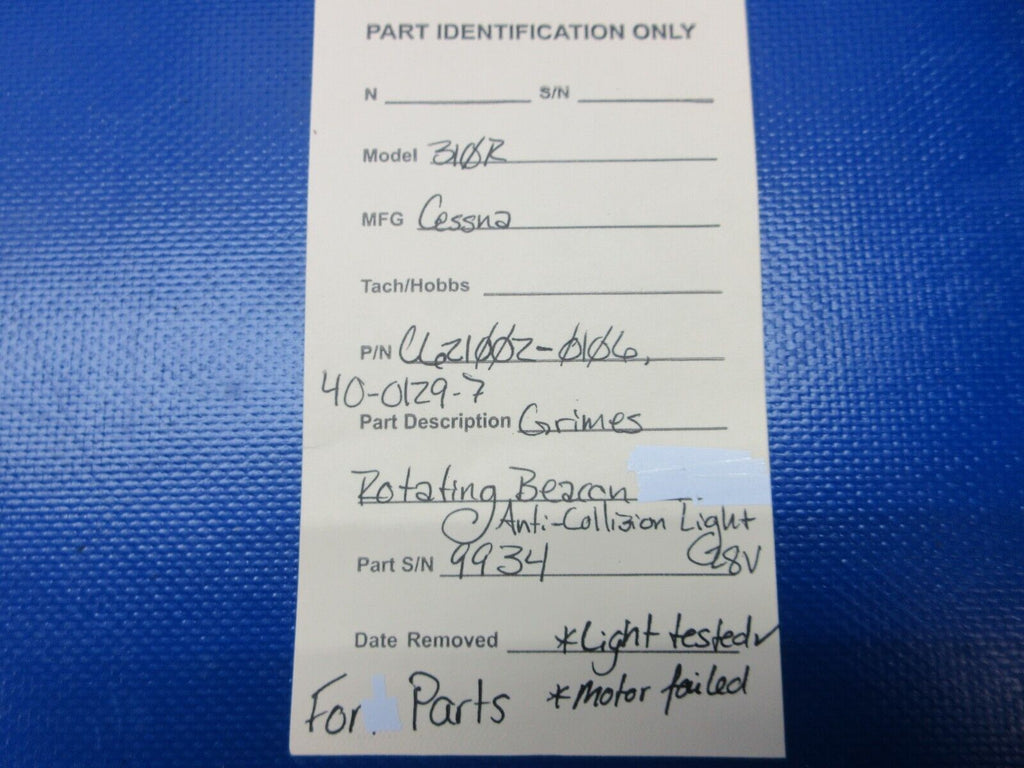 PART IDENTIFICATION ONLY
N S/N
Model 310R
MFG Cessna
Tach/Hobbs
P/N C621002-0106,
40-0129-7
Part Description Grimes
Rotating Beacon
Anti-Collision Light
Part S/N 9934 28V
Date Removed *Light tested✓
For Parts *Motor failed